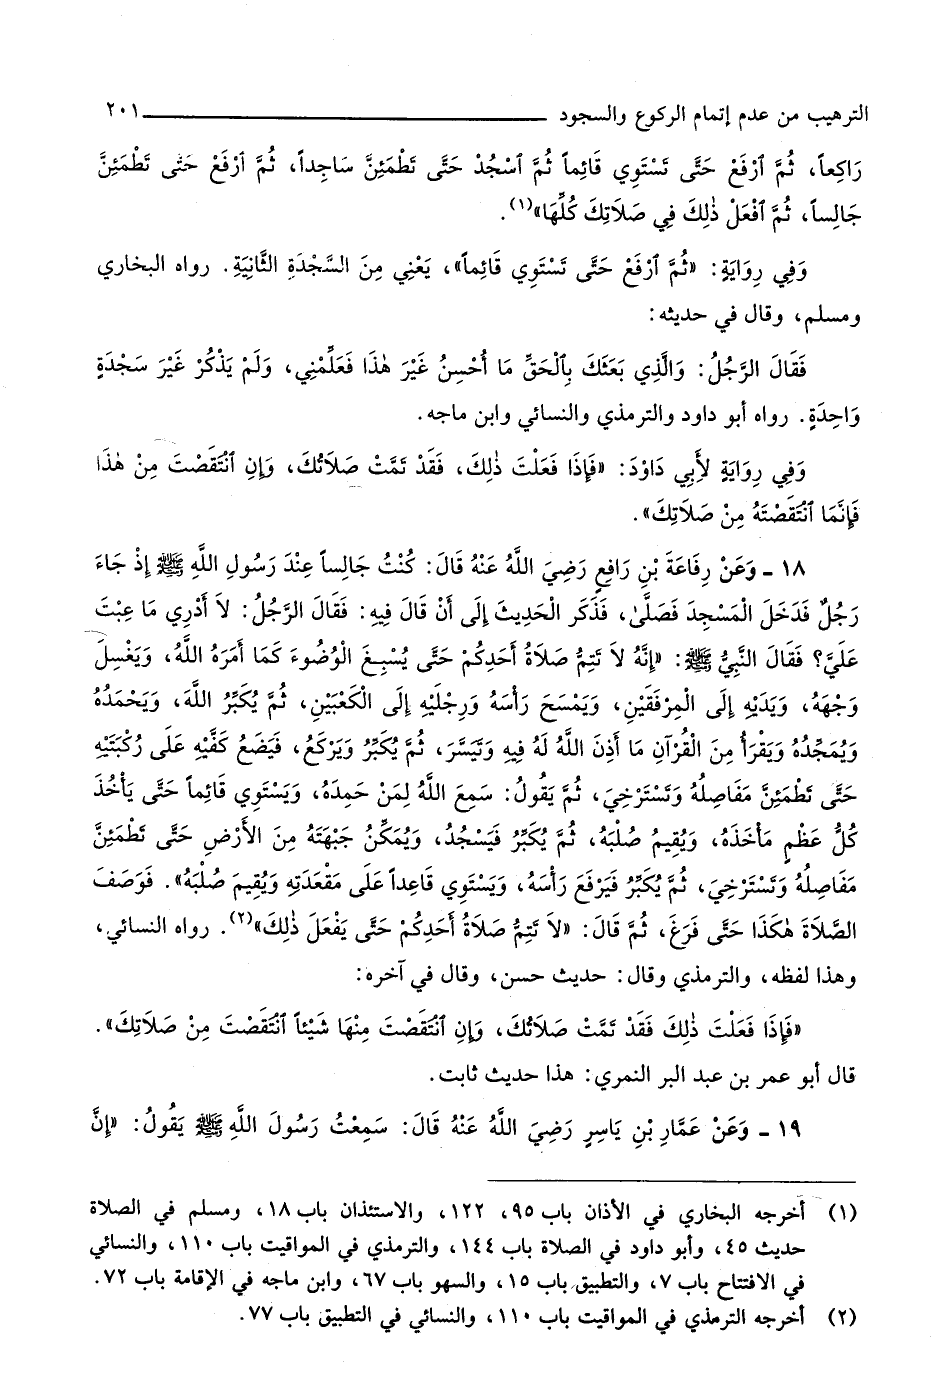 الترهيب من عدم إتمام الركوع والسجود ٢٠١
رَاكِعاً، ثُمَّ ٱرْفَعْ حَتَّى تَسْتَوِي قَائِماً ثُمَّ ٱسْجُدْ حَتَّى تَطْمَئِنَّ سَاجِداً، ثُمَّ ٱرْفَعْ حَتَّى تَطْمَئِنَّ
جَالِساً، ثُمَّ ٱفْعَلْ ذٰلِكَ فِي صَلَاتِكَ كُلِّهَا»(١).
وَفِي رِوَايَةٍ: «ثُمَّ ٱرْفَعْ حَتَّى تَسْتَوِي قَائِماً»، يَعْنِي مِنَ السَّجْدَةِ الثَّانِيَةِ. رواه البخاري
ومسلم، وقال في حديثه:
فَقَالَ الرَّجُلُ: وَالَّذِي بَعَثَكَ بِٱلْحَقِّ مَا أُحْسِنُ غَيْرَ هٰذَا فَعَلِّمْنِي، وَلَمْ يَذْكُرْ غَيْرَ سَجْدَةٍ
وَاحِدَةٍ. رواه أبو داود والترمذي والنسائي وابن ماجه.
وَفِي رِوَايَةٍ لِأَبِي دَاوُدَ: «فَإِذَا فَعَلْتَ ذٰلِكَ، فَقَدْ تَمَّتْ صَلَاتُكَ، وَإِنِ ٱنْتَقَصْتَ مِنْ هٰذَا
فَإِنَّمَا ٱنْتَقَصْتَهُ مِنْ صَلَاتِكَ».
١٨ ـ وَعَنْ رِفَاعَةَ بْنِ رَافِعٍ رَضِيَ اللَّهُ عَنْهُ قَالَ: كُنْتُ جَالِساً عِنْدَ رَسُولِ اللَّهِ ﷺ إِذْ جَاءَ
رَجُلٌ فَدَخَلَ الْمَسْجِدَ فَصَلَّىٰ، فَذَكَرَ الْحَدِيثَ إِلَى أَنْ قَالَ فِيهِ: فَقَالَ الرَّجُلُ: لاَ أَدْرِي مَا عِبْتَ
عَلَيَّ؟ فَقَالَ النَّبِيُّ ﷺ: «إِنَّهُ لاَ تَتِمُّ صَلَاةُ أَحَدِكُمْ حَتَّى يُسْبِغَ الْوُضُوءَ كَمَا أَمَرَهُ اللَّهُ، وَيَغْسِلَ
وَجْهَهُ، وَيَدَيْهِ إِلَى الْمِرْفَقَيْنِ، وَيَمْسَحَ رَأْسَهُ وَرِجْلَيْهِ إِلَى الْكَعْبَيْنِ، ثُمَّ يُكَبِّرُ اللَّهَ، وَيَحْمَدُهُ
وَيُمَجِّدُهُ وَيَقْرَأُ مِنَ الْقُرْآنِ مَا أَذِنَ اللَّهُ لَهُ فِيهِ وَتَيَسَّرَ، ثُمَّ يُكَبِّرُ وَيَرْكَعُ، فَيَضَعُ كَفَّيْهِ عَلَى رُكْبَتَيْهِ
حَتَّى تَطْمَئِنَّ مَفَاصِلُهُ وَتَسْتَرْخِيَ، ثُمَّ يَقُولُ: سَمِعَ اللَّهُ لِمَنْ حَمِدَهُ، وَيَسْتَوِي قَائِماً حَتَّى يَأْخُذَ
كُلُّ عَظْمٍ مَأْخَذَهُ، وَيُقِيمُ صُلْبَهُ، ثُمَّ يُكَبِّرُ فَيَسْجُدُ، وَيُمَكِّنُ جَبْهَتَهُ مِنَ الأَرْضِ حَتَّى تَطْمَئِنَّ
مَفَاصِلُهُ وَتَسْتَرْخِيَ، ثُمَّ يُكَبِّرُ فَيَرْفَعَ رَأْسَهُ، وَيَسْتَوِي قَاعِداً عَلَى مَقْعَدَتِهِ وَيُقِيمَ صُلْبَهُ». فَوَصَفَ
الصَّلَاةَ هٰكَذَا حَتَّى فَرَغَ، ثُمَّ قَالَ: «لاَ تَتِمُّ صَلَاةُ أَحَدِكُمْ حَتَّى يَفْعَلَ ذٰلِكَ»(٢). رواه النسائي،
وهذا لفظه، والترمذي وقال: حديث حسن، وقال في آخره:
«فَإِذَا فَعَلْتَ ذٰلِكَ فَقَدْ تَمَّتْ صَلَاتُكَ، وَإِنِ ٱنْتَقَصْتَ مِنْهَا شَيْئاً ٱنْتَقَصْتَ مِنْ صَلَاتِكَ».
قال أبو عمر بن عبد البر النمري: هذا حديث ثابت.
١٩ ـ وَعَنْ عَمَّارِ بْنِ يَاسِرٍ رَضِيَ اللَّهُ عَنْهُ قَالَ: سَمِعْتُ رَسُولَ اللَّهِ ﷺ يَقُولُ: «إِنَّ
(١) أخرجه البخاري في الأذان باب ٩٥، ١٢٢، والاستئذان باب ١٨، ومسلم في الصلاة
حديث ٤٥، وأبو داود في الصلاة باب ١٤٤، والترمذي في المواقيت باب ١١٠، والنسائي
في الافتتاح باب ٧، والتطبيق باب ١٥، والسهو باب ٦٧، وابن ماجه في الإقامة باب ٧٢.
(٢) أخرجه الترمذي في المواقيت باب ١١٠، والنسائي في التطبيق باب ٧٧.